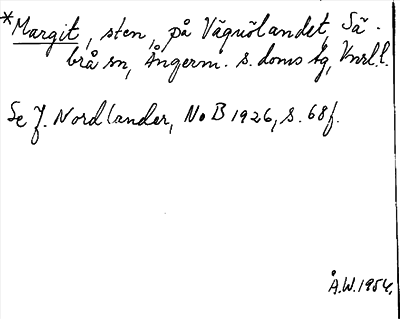 *Margit, sten, på Vägnölandet, Sä-
brå sn, Ångerm. s. doms lg, Vnrl. l.
Se J. Nordlander, NoB 1926, s. 68f.
Å.W. 1954.